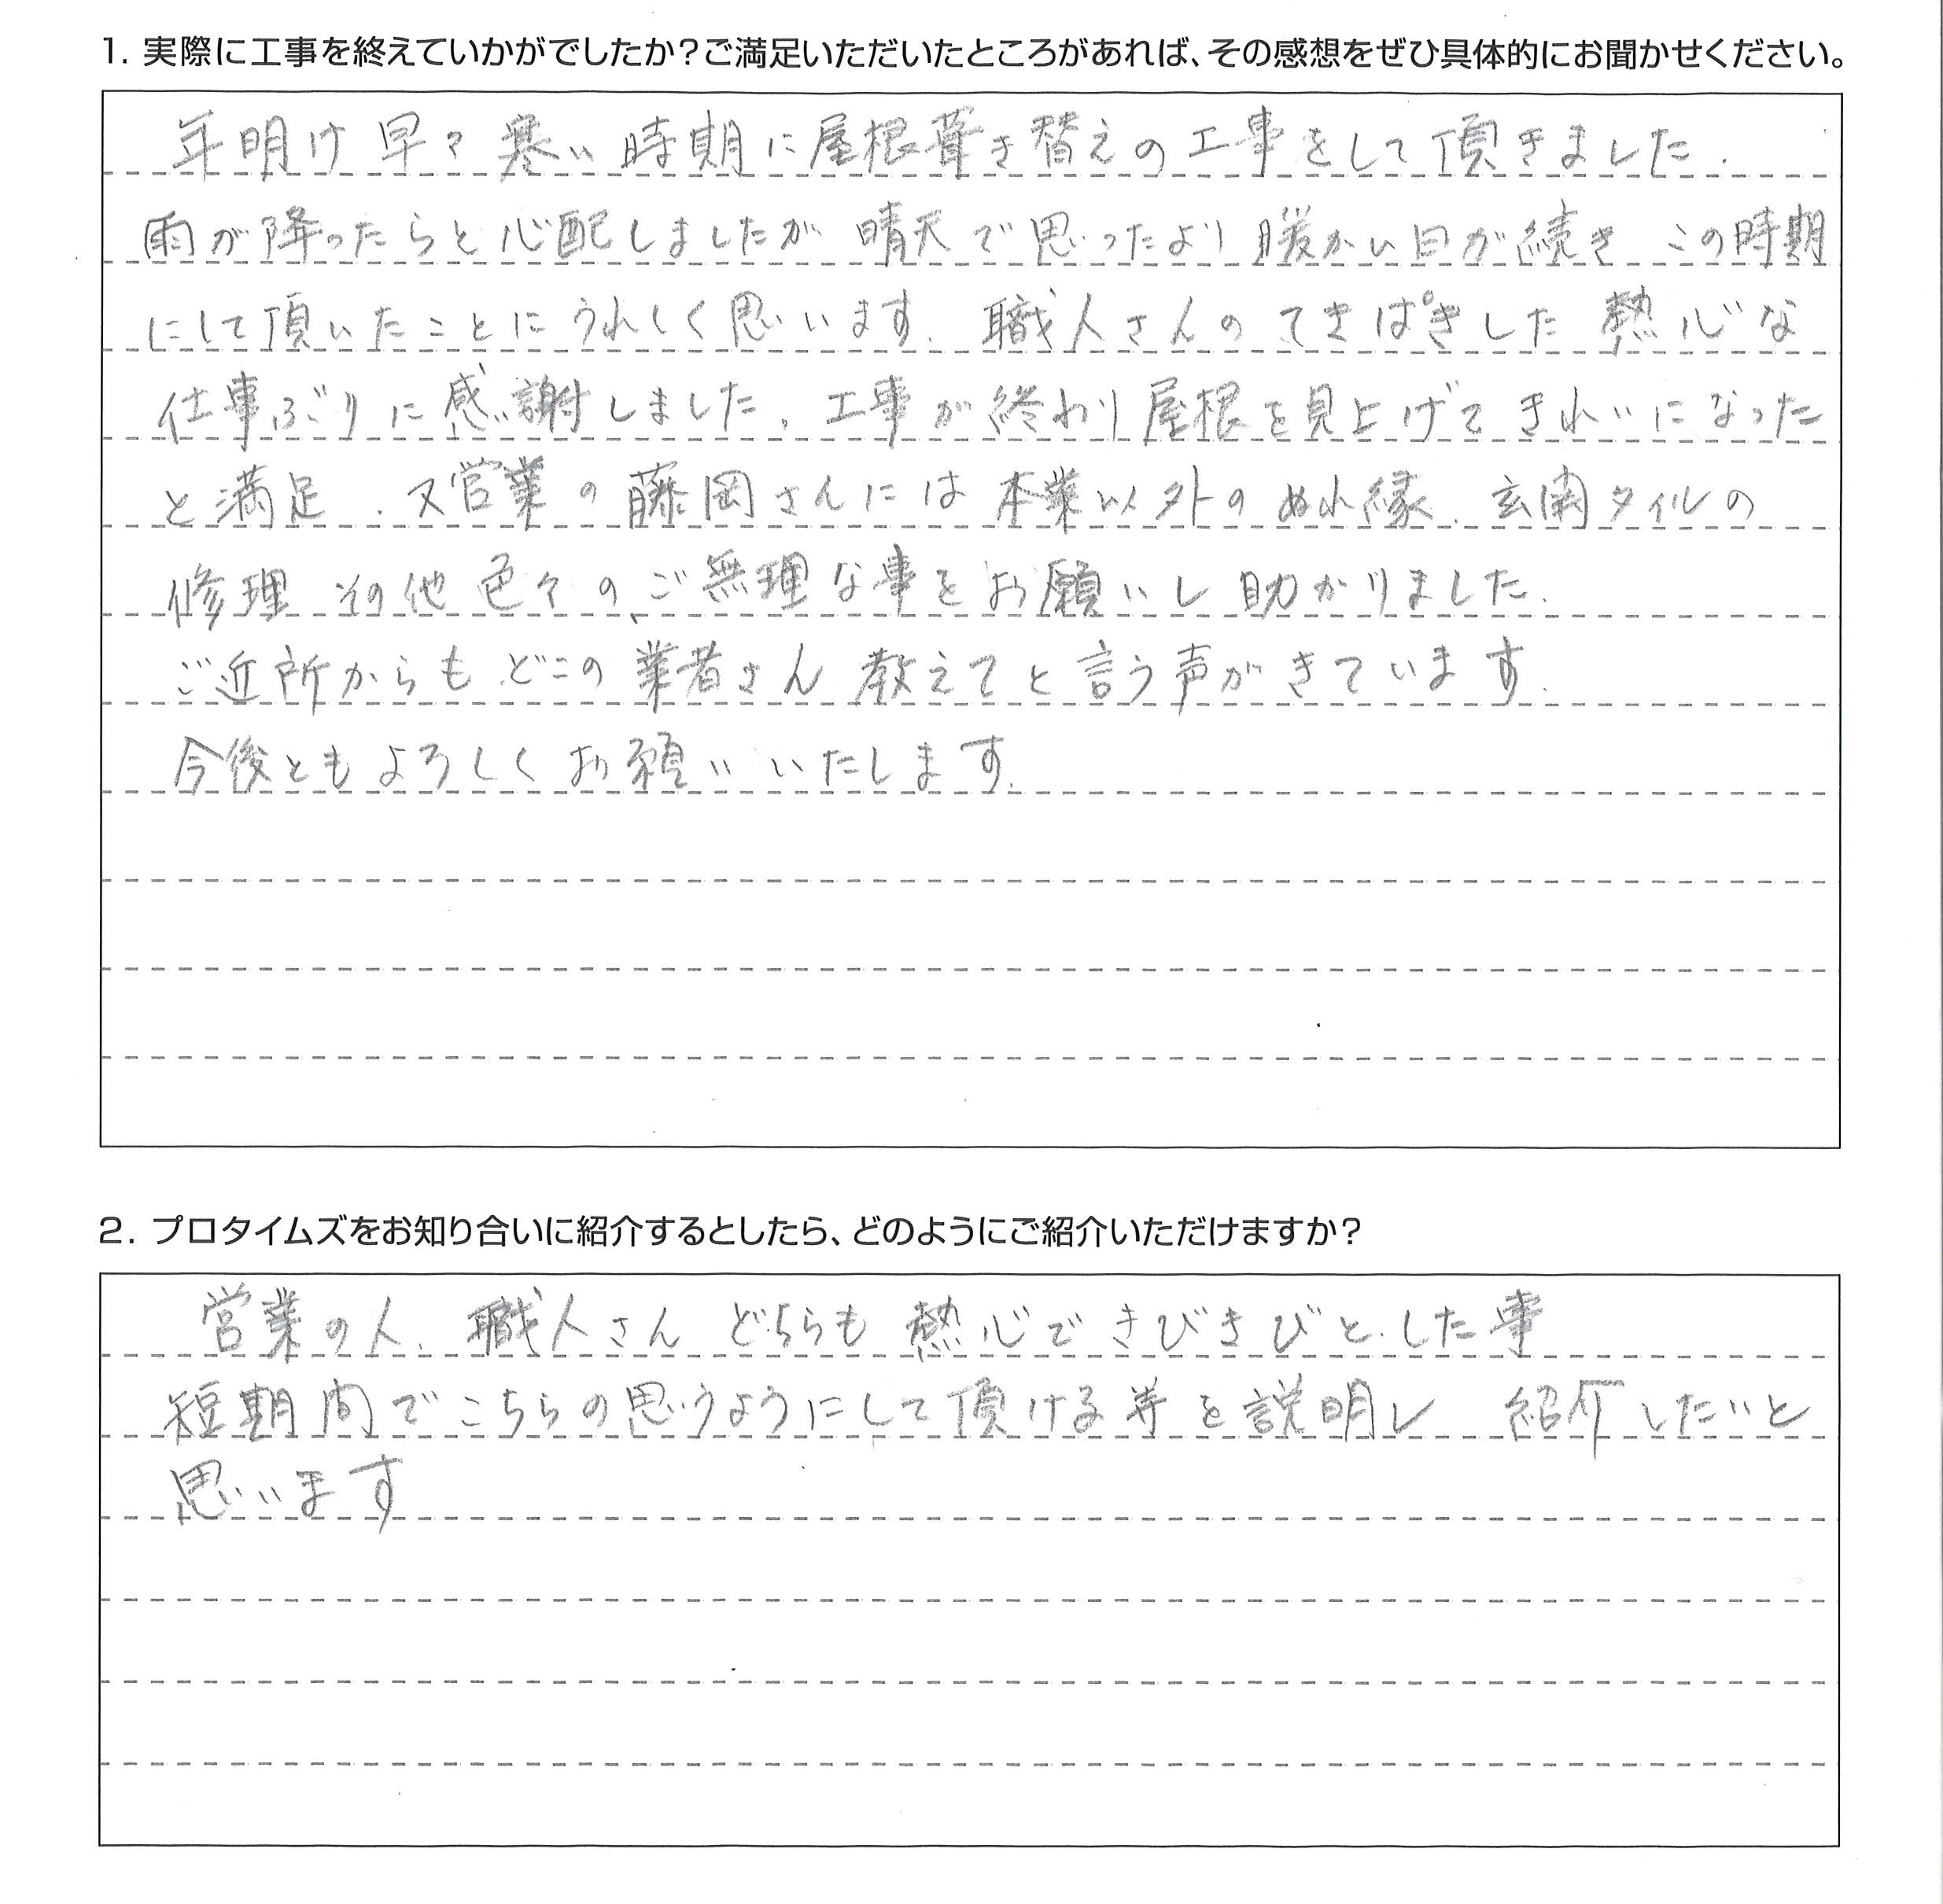 1. 実際に工事を終えていかがでしたか?ご満足いただいたところがあれば、その感想をぜひ具体的にお聞かせください。
年明け早々寒い時期に屋根葺き替えの工事をして頂きました.
雨が降ったらと心配しましたが 晴天で思ったより暖かい日が続き この時期
にして頂いたことにうれしく思います. 職人さんのてきぱきした熱心な
仕事ぶりに感謝しました. 工事が終わり屋根を見上げてきれいになった
と満足. 又営業の藤岡さんには本業以外のぬれ縁. 玄関タイルの
修理 その他色々のご無理な事をお願いし助かりました.
ご近所からもどこの業者さん教えてと言う声がきています.
今後ともよろしくお願いいたします.
2. プロタイムズをお知り合いに紹介するとしたら、どのようにご紹介いただけますか?
営業の人. 職人さんどちらも熱心できびきびとした事
短期間でこちらの思うようにして頂ける等を説明し 紹介したいと
思います